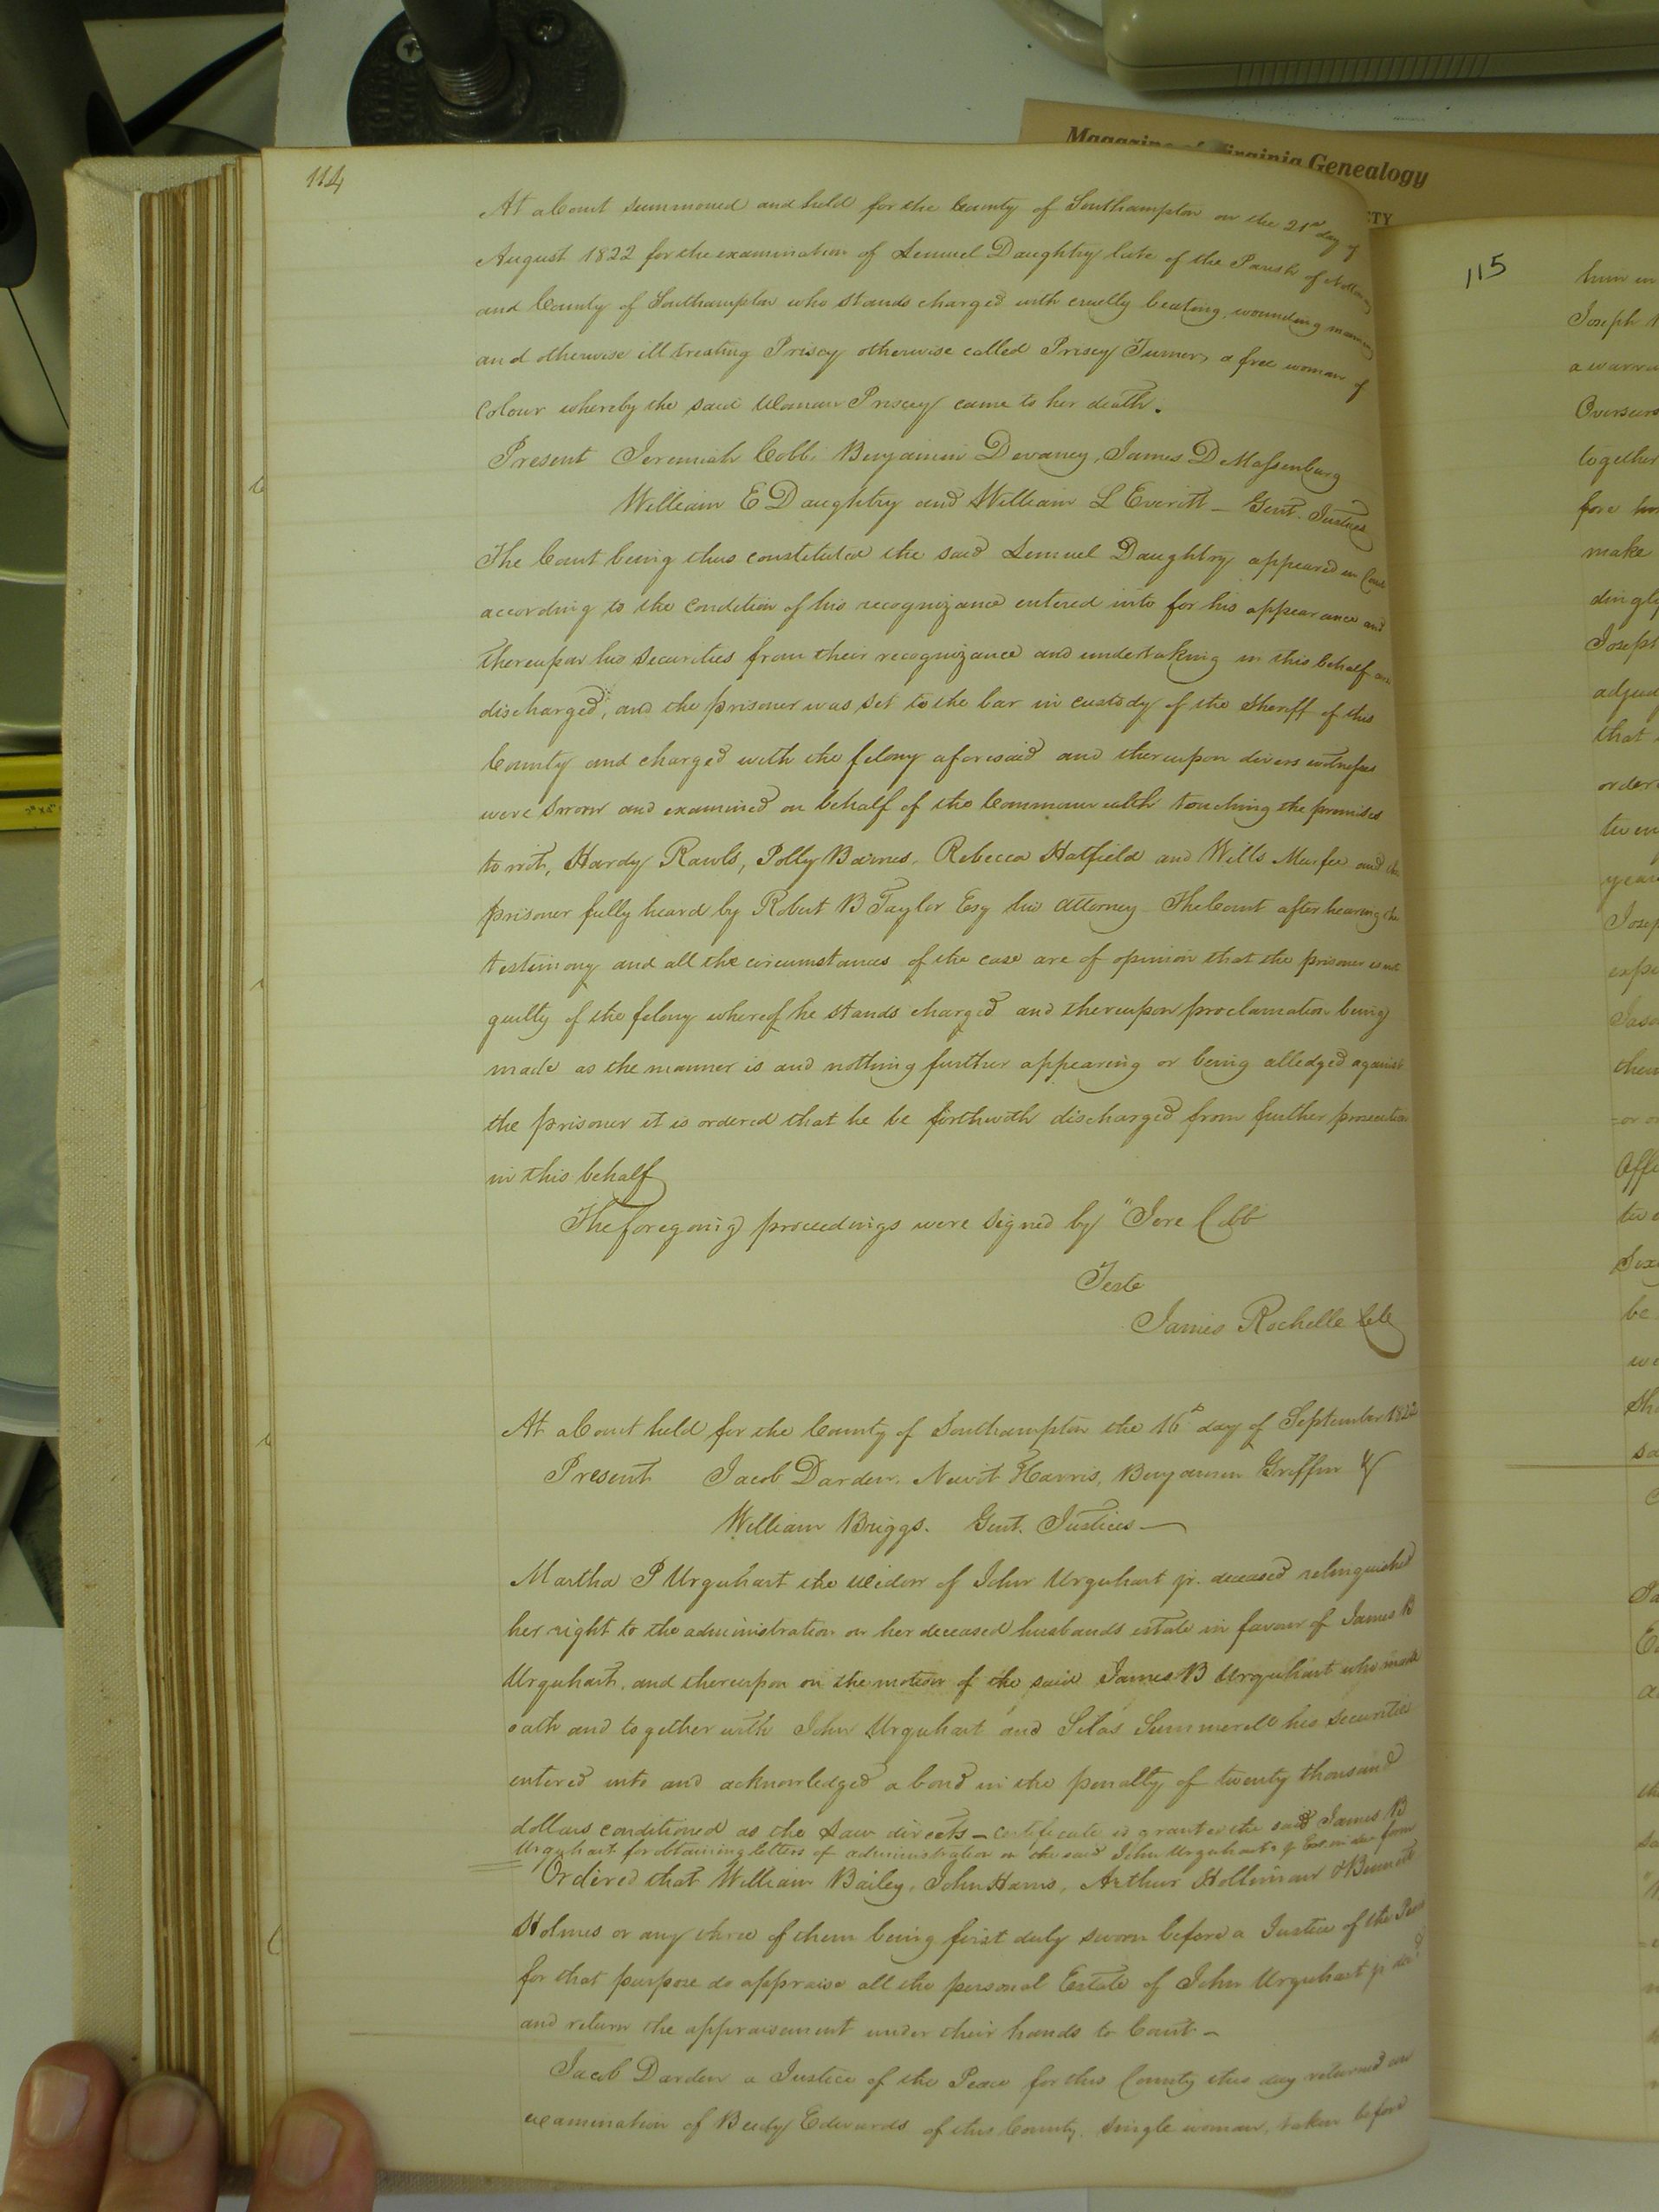 Magazine of Virginia Genealogy
114
At a Court summoned and held for the County of Southampton on the 21st day of
August 1822 for the examination of Lemuel Daughtry late of the Parish of
and County of Southampton who stands charged with cruelly beating, wounding
and otherwise ill treating Priscy otherwise called Priscy Turner, a free woman of
Colour whereby the said Woman Priscy came to her death.
Present Jeremiah Cobb, Benjamin Devaney, James D Massenburg
William E Daughtry and William L Everitt - Gent. Justices
The Court being thus constituted the said Lemuel Daughtry appeared in Court
according to the condition of his recognizance entered into for his appearance and
thereupon his securities from their recognizance and undertaking in this behalf are
discharged, and the prisoner was set to the bar in custody of the Sheriff of this
County and charged with the felony aforesaid and thereupon divers witnesses
were sworn and examined on behalf of the Commonwealth touching the premises
to wit, Hardy Rawls, Polly Barnes, Rebecca Hatfield and Wills Murfee and the
prisoner fully heard by Robert B Taylor Esq his Attorney The Court after hearing the
testimony and all the circumstances of the case are of opinion that the prisoner is not
guilty of the felony whereof he stands charged and thereupon proclamation being
made as the manner is and nothing further appearing or being alledged against
the prisoner it is ordered that he be forthwith discharged from further prosecution
in this behalf
The foregoing proceedings were signed by "Jere Cobb
Teste
James Rochelle Clk
At a Court held for the County of Southampton the 16th day of September 1822
Present Jacob Darden, Newit Harris, Benjamin Griffin &
William Briggs. Gent. Justices -
Martha P Urquhart the widow of John Urquhart jr. deceased relinquished
her right to the administration on her deceased husbands estate in favour of James B
Urquhart, and thereupon on the motion of the said James B Urquhart who made
oath and together with John Urquhart and Silas Summerell his securities
entered into and acknowledged a bond in the penalty of twenty thousand
dollars conditioned as the Law directs - certificate is granted the said James B
Urquhart for obtaining letters of administration on the said John Urquhart's in due form
Ordered that William Bailey, John Harris, Arthur Holleman & Bennett
Holmes or any three of them being first duly sworn before a Justice of the Peace
for that purpose do appraise all the personal Estate of John Urquhart jr decd
and return the appraisement under their hands to Court -
Jacob Darden a Justice of the Peace for this County this day returned an
examination of Beedy Edwards of this County, single woman, taken before
115
Joseph
Overseers
together
make
Joseph
that